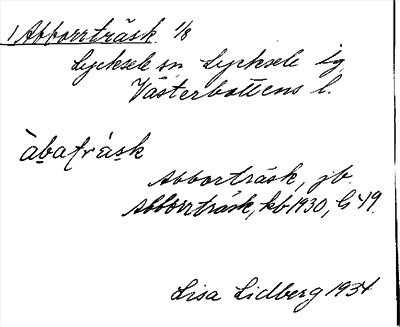 1 Abborrträsk 1/8
Lycksele sn Lycksele lg
Västerbottens l.
àbatràsk
Abborträsk, jb.
Abborrträsk, kb 1930, G 49.
Lisa Lidberg 1934